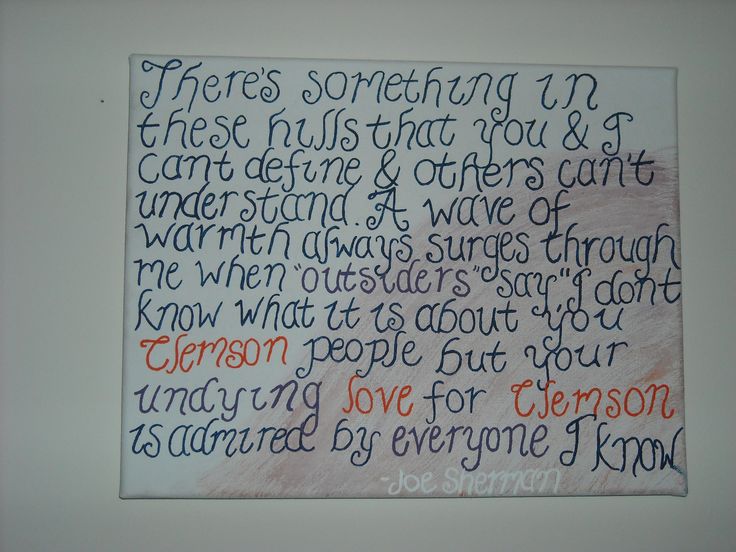 There's something in
these hills that you & I
can't define & others can't
understand. A wave of
warmth always surges through
me when "outsiders" say "I don't
know what it is about you
Clemson people but your
undying love for Clemson
is admired by everyone I know
-Joe Sherman